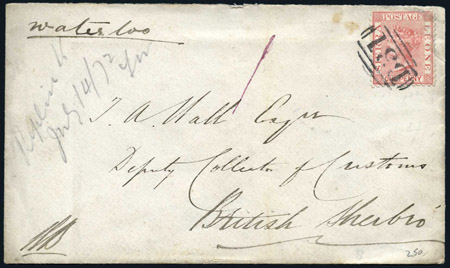 Waterloo
POSTAGE
July 14/72
T. A. Wall Esqr
Deputy Collector of Customs
British Sherbro
250